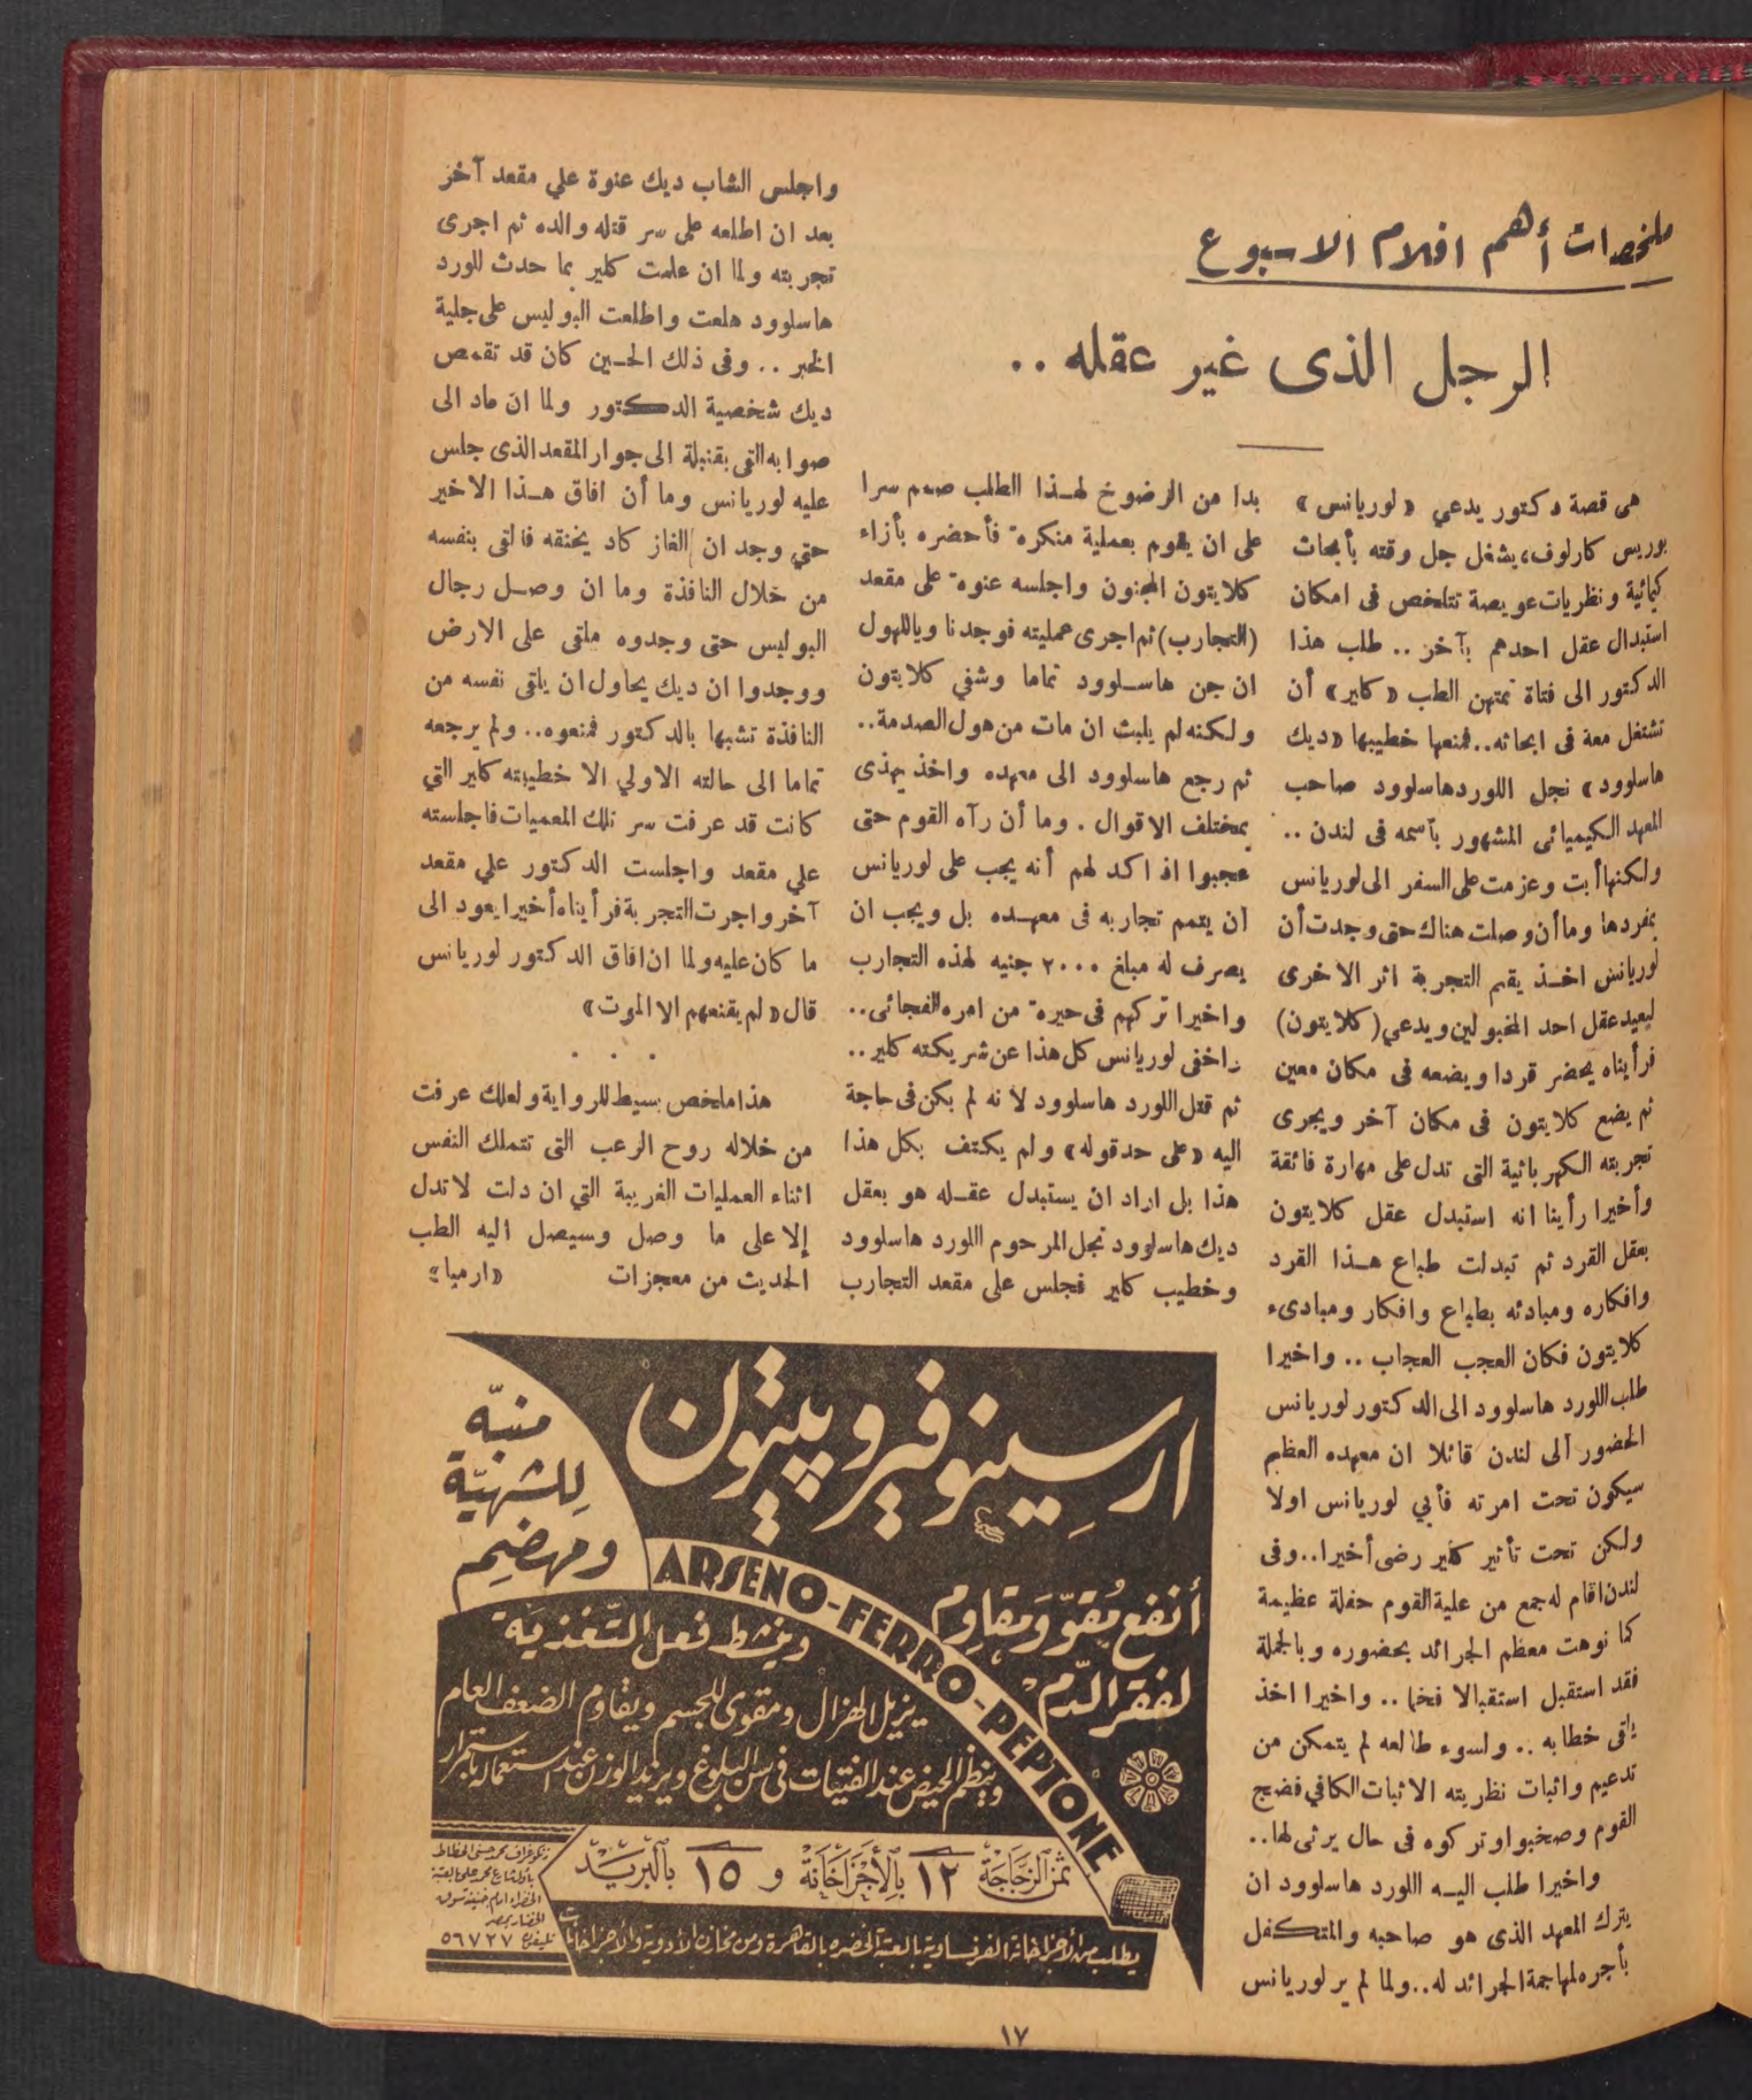 ملخصات أهم افلام الاسبوع
الرجل الذى غير عقله ..
هى قصة دكتور يدعي « لوريانس »
بوريس كارلوف، يشغل جل وقته بأبحاث
كيمائية ونظريات عويصة تتلخص فى امكان
استبدال عقل احدهم بآخر .. طلب هذا
الدكتور الى فتاة تمتهن الطب « كلير » أن
تشتغل معة فى ابحاثه.. فمنعها خطيبها « ديك
هاسلوود » نجل اللورد هاسلوود صاحب
المعهد الكيميائى المشهور بأسمه فى لندن ..
ولكنها أبت وعزمت على السفر الى لوريانس
بمفردها وما أن وصلت هناك حتى وجدت أن
لوريانس اخذ يقيم التجربة اثر الاخرى
ليعيد عقل احد المخبولين ويدعي ( كلايتون )
فرأيناه يحضر قردا ويضعه فى مكان معين
ثم يضع كلايتون فى مكان آخر ويجرى
تجربته الكهربائية التى تدل على مهارة فائقة
وأخيرا رأينا انه استبدل عقل كلايتون
بعقل القرد ثم تبدلت طباع هذا القرد
وافكاره ومبادئه بطباع وافكار ومبادىء
كلايتون فكان العجب العجاب .. واخيرا
طلب اللورد هاسلوود الى الدكتور لوريانس
الحضور الى لندن قائلا ان معهده العظيم
سيكون تحت امرته فأبي لوريانس اولا
ولكن تحت تأثير كلير رضى أخيرا.. وفى
لندن اقام له جمع من علية القوم حفلة عظيمة
كما نوهت معظم الجرائد بحضوره وبالجملة
فقد استقبل استقبالا فخما .. واخيرا اخذ
يلقى خطابه .. ولسوء طالعه لم يتمكن من
تدعيم واثبات نظريته الاثبات الكافي فضج
القوم وصخبوا وتركوه فى حال يرثى لها..
واخيرا طلب اليه اللورد هاسلوود ان
يترك المعهد الذى هو صاحبه والمتكفل
بأجره لمهاجمة الجرائد له.. ولما لم ير لوريانس
بدا من الرضوخ لهذا الطلب صمم سرا
على ان يقوم بعملية منكرة فأحضره بأزاء
كلايتون المجنون واجلسه عنوة على مقعد
( التجارب ) ثم اجرى عمليته فوجدنا وياللهول
ان جن هاسلوود تماما وشفي كلايتون
ولكنه لم يلبث ان مات من هول الصدمة..
ثم رجع هاسلوود الى معهده واخذ يهذى
بمختلف الاقوال . وما أن رآه القوم حتى
عجبوا اذ اكد لهم أنه يجب على لوريانس
أن يتمم تجاربه فى معهده بل ويجب ان
يصرف له مبلغ ٢٠٠٠ جنيه لهذه التجارب
واخيرا تركهم فى حيرة من امره الفجائى..
واخفى لوريانس كل هذا عن شريكته كلير..
ثم قتل اللورد هاسلوود لانه لم يكن فى حاجة
اليه « على حد قوله » ولم يكتف بكل هذا
هذا بل اراد ان يستبدل عقله هو بعقل
ديك هاسلوود نجل المرحوم اللورد هاسلوود
وخطيب كلير فجلس على مقعد التجارب
واجلس الشاب ديك عنوة علي مقعد آخر
بعد ان اطلعه على سر قتله والده ثم اجرى
تجربته ولما ان علمت كلير بما حدث للورد
هاسلوود هلعت واطلعت البوليس على جلية
الخبر .. وفى ذلك الحين كان قد تقمص
ديك شخصية الدكتور ولما ان عاد الى
صوابه التى بقنبلة الى جوار المقعد الذى جلس
عليه لوريانس وما أن افاق هذا الاخير
حتي وجد ان الغاز كاد يخنقه فالقى بنفسه
من خلال النافذة وما ان وصل رجال
البوليس حتى وجدوه ملقى على الارض
ووجدوا ان ديك يحاول ان يلقى نفسه من
النافذة تشبها بالدكتور فمنعوه.. ولم يرجعه
تماما الى حالته الاولي الا خطيبته كلير التي
كانت قد عرفت سر تلك المعميات فاجلسته
علي مقعد واجلست الدكتور علي مقعد
آخر واجرت التجربة فرأيناه أخيرا يعود الى
ما كان عليه ولما ان افاق الدكتور لوريانس
قال « لم يقنعهم الا الموت »
. . .
هذا ملخص بسيط للرواية ولعلك عرفت
من خلاله روح الرعب التى تتملك النفس
اثناء العمليات الغريبة التي ان دلت لا تدل
إلا على ما وصل وسيصل اليه الطب
الحديث من معجزات « ارميا »
ارسينوفيروپيتون
منبّه
للشهيّة
ومهضِم
ARSENO-FERRO-PEPTONE
أنفع مُقوّ وَمقاوِم
لفقر الدّم
وينشط فعل التّغذية
يزيل الهزال ومقوى للجسم ويقاوم الضعف العام
وينظم الحيض عند الفتيات فى سن البلوغ ويزيد الوزن عند استعماله باستمرار
ثمن الزجاجة ١٢ بالأجزاخانة و ١٥ بالبريد
يطلب من الأجزاخانة الفرنساوية بالعتبة الخضره بالقاهرة ومن مخازن الأدوية والأجزاخانات
زنكوغراف محمد حسنى الخطاط
بأول شارع محمد على بالعتبة
الخضراء امام
الخضار بمصر
تليفون ٥٦٧٢٧
١٧